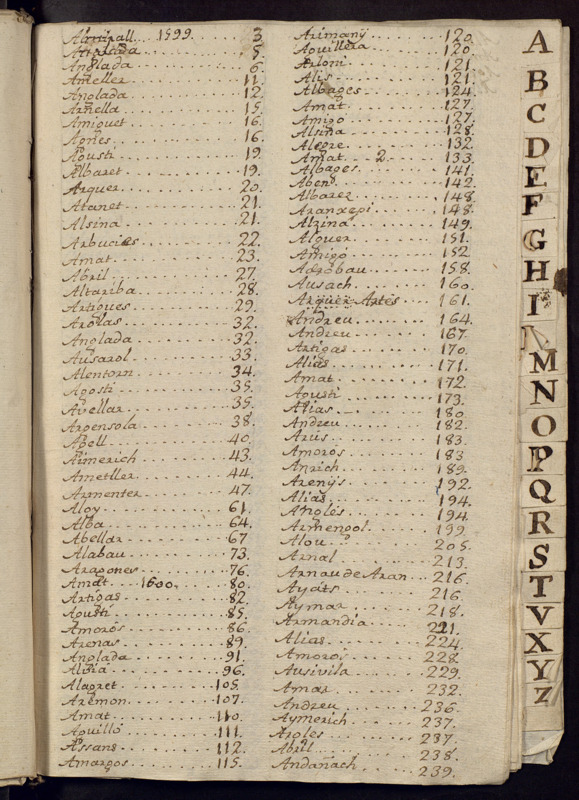 Almirall 1599 3
Altarriba 5
Anglada 6
Ameller 11
Anglada 12
Armella 15
Amiguet 16
Agnes 16
Agusti 19
Albaret 19
Arquer 20
Atanet 21
Alsina 21
Arbucies 22
Amat 23
Abril 27
Altariba 28
Artigues 29
Arolas 32
Anglada 32
Ausarol 33
Alentorn 34
Agosti 35
Avellar 35
Argensola 38
Abell 40
Aimerich 43
Ametller 44
Armenter 47
Aloy 61
Alba 64
Abellar 67
Alabau 73
Aragones 76
Amat 1600 80
Artigas 82
Agusti 85
Amoros 86
Arenas 89
Anglada 91
Albia 96
Alagret 105
Aremon 107
Amat 110
Aguillo 111
Assans 112
Amargos 115
Arimany 120
Aguillera 120
Arloni 121
Alis 121
Albages 124
Amat 127
Amigo 127
Alsina 128
Alegre 132
Amat 2 133
Albages 141
Abens 142
Albarez 148
Aranxepi 148
Alzina 149
Alguer 151
Amigo 152
Adrobau 158
Ausach 160
Arquer Artés 161
Andreu 164
Andreu 167
Artigas 170
Alias 171
Amat 172
Agusti 173
Alias 180
Andreu 182
Arus 183
Amoros 183
Anrich 189
Arenys 192
Alias 194
Anglés 194
Armengol 199
Alou 205
Arnal 213
Arnau de Aran 216
Ayats 216
Aymar 218
Armandia 221
Alias 224
Amoros 228
Ausivila 229
Amar 232
Andreu 236
Aymerich 237
Argles 237
Abril 238
Andañach 239
A
B
C
D
E
F
G
H
I
M
N
O
P
Q
R
S
T
V
X
Y
Z